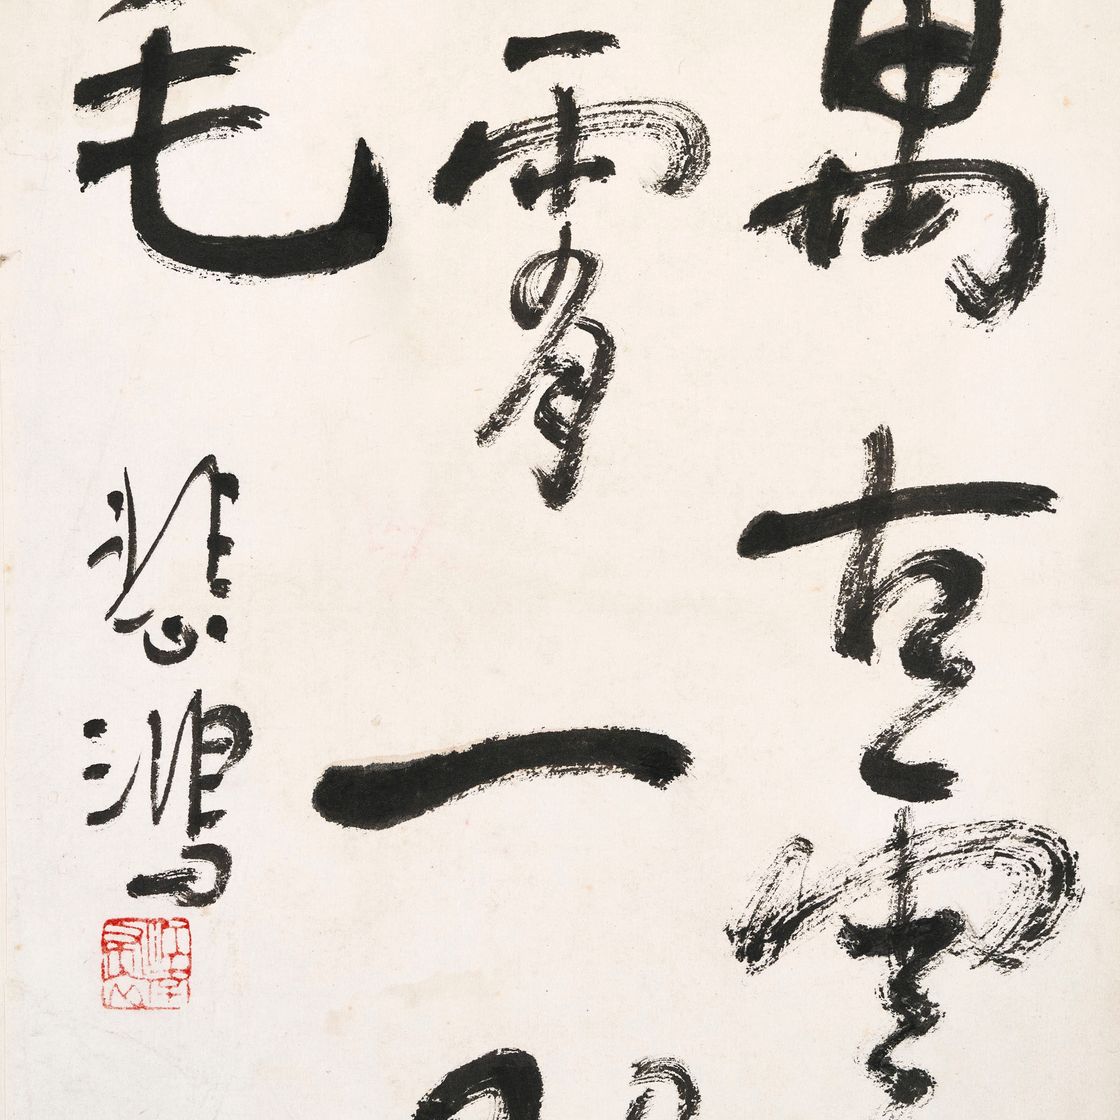 萬古雲
霄一
毛
悲鴻